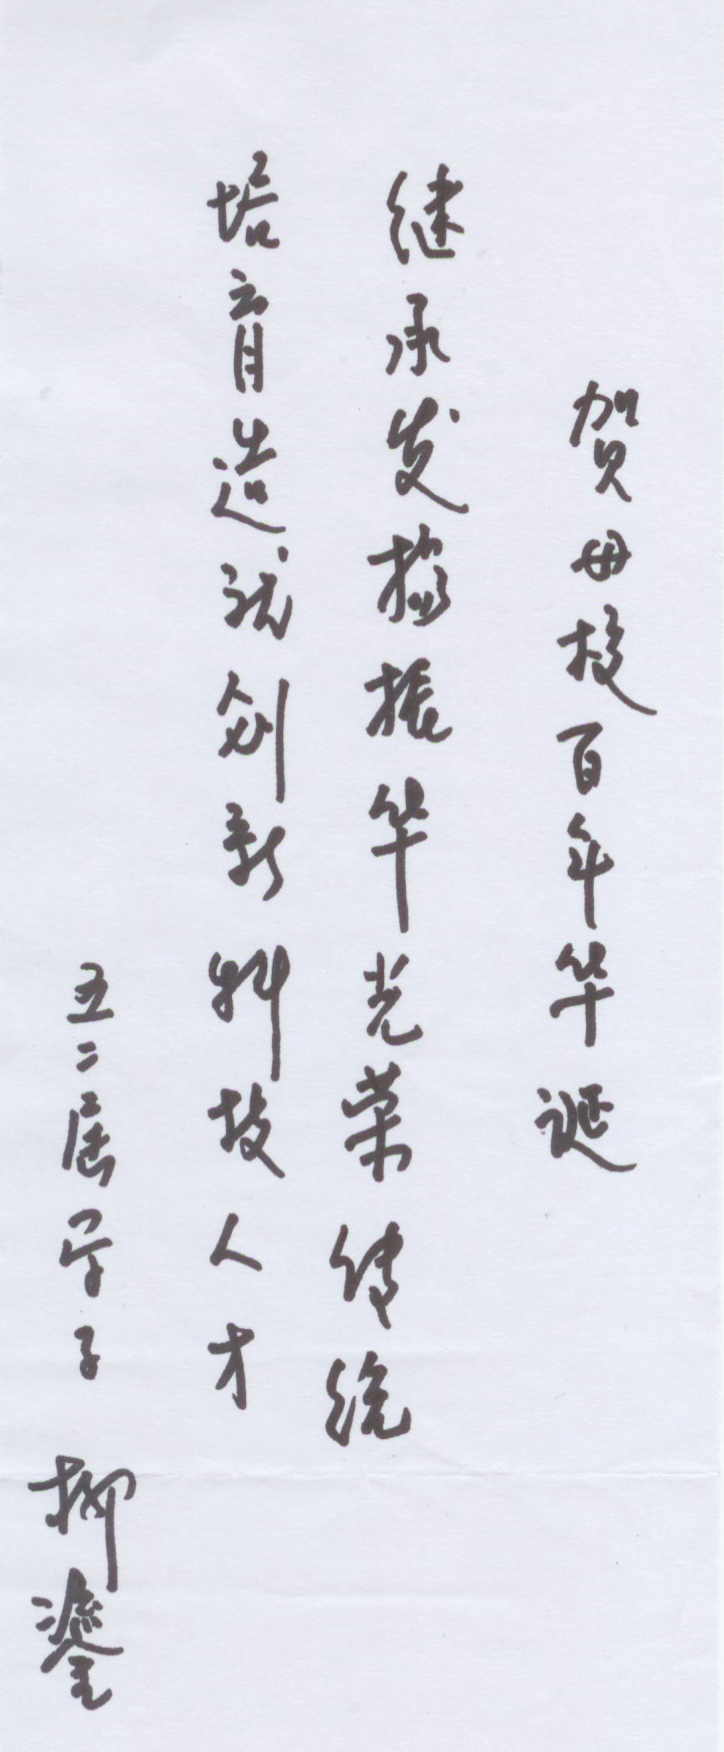 贺母校百年华诞
继承发扬振华光荣传统
培育造就创新科技人才
五二届学子 柳鎏